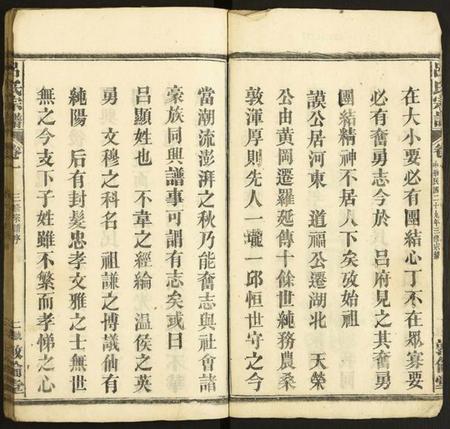 在大小要必有團結心丁不在眾寡要
必有奮勇志今於 呂府見之其奮勇
團結精神不居人下矣攷始祖
謨公居河東 道福公遷湖北 天榮
公由黄岡遷羅延傳十餘世純務農桑
敦渾厚則先人一壠一邱恒世守之今
當潮流澎湃之秋乃能奮志與社會諸
豪族同興譜事可謂有志矣或曰
呂顯姓也 不韋之經綸 温侯之英
勇 文穆之科名 祖謙之博議仙有
純陽 后有封髮忠孝文雅之士無世
無之今支下子姓雖不繁而孝悌之心
呂氏宗譜
卷一
二
敦倫堂